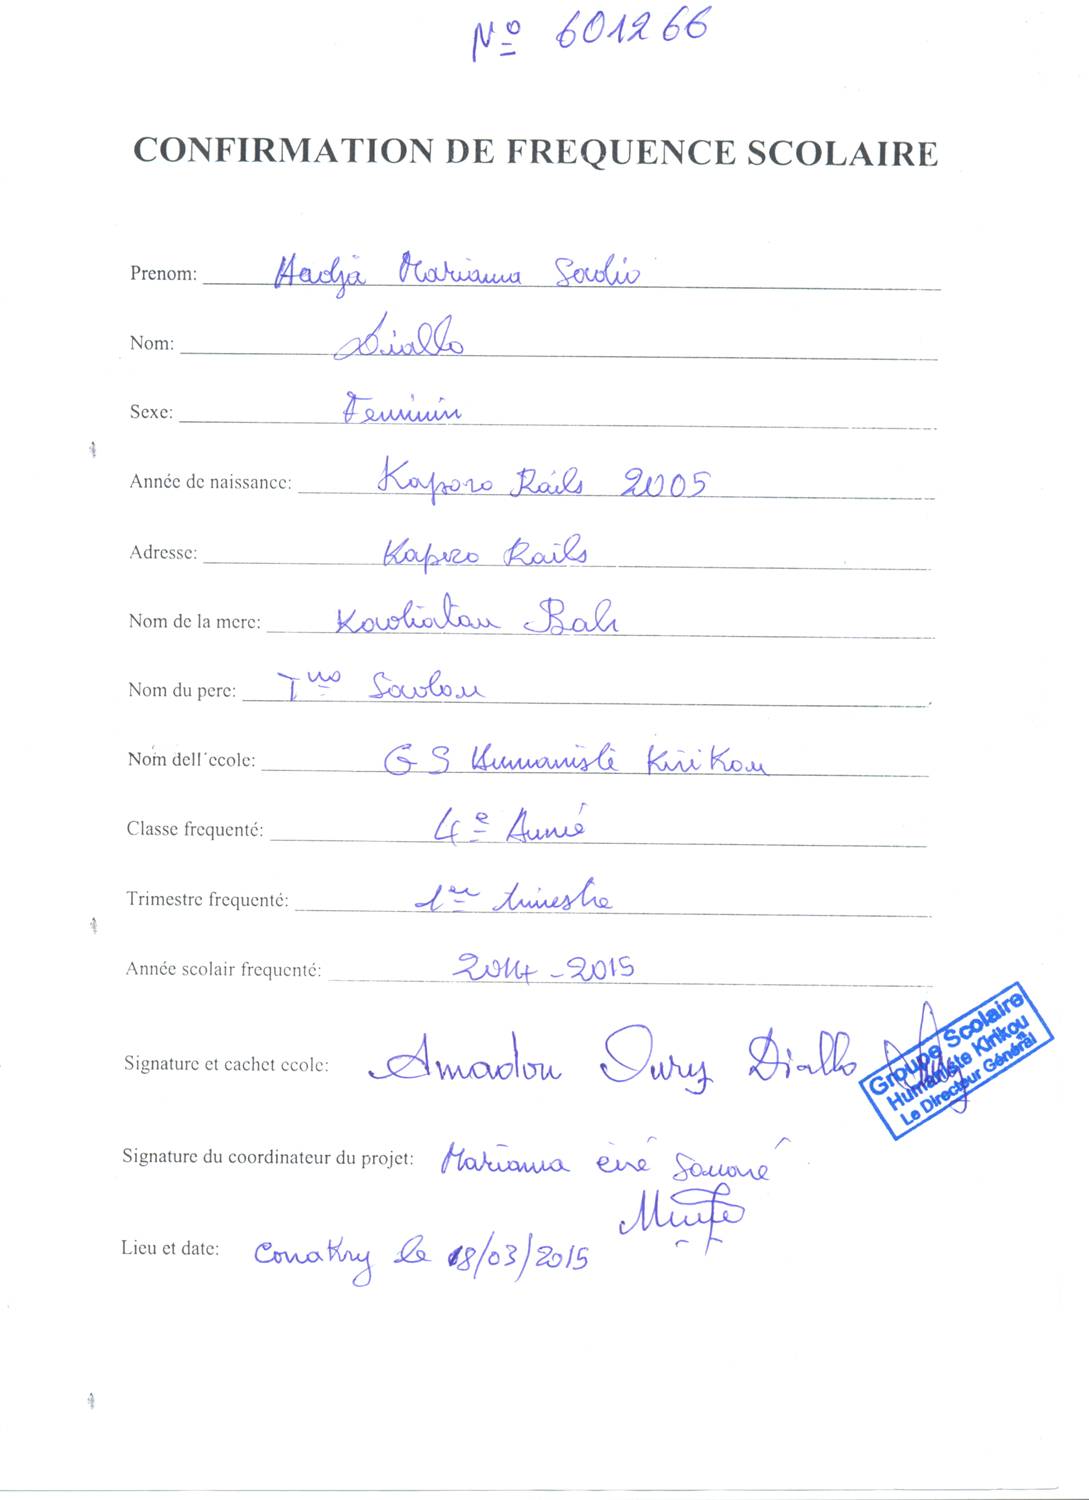 Nº 601266
CONFIRMATION DE FREQUENCE SCOLAIRE
Prenom: Hadja Mariama
Nom: Diallo
Sexe: Feminin
Année de naissance: Kaporo Rails 2005
Adresse: Kaporo Rails
Nom de la mere: Bah
Nom du pere: Tno
Nom dell´ecole: G S Humaniste Kirikou
Classe frequenté: 4e Année
Trimestre frequenté: 1er trimestre
Année scolair frequenté: 2014-2015
Signature et cachet ecole: Amadou Oury Diallo
Groupe Scolaire
Humaniste Kirikou
Le Directeur Général
Signature du coordinateur du projet: Mariama
Lieu et date: Conakry le 18/03/2015